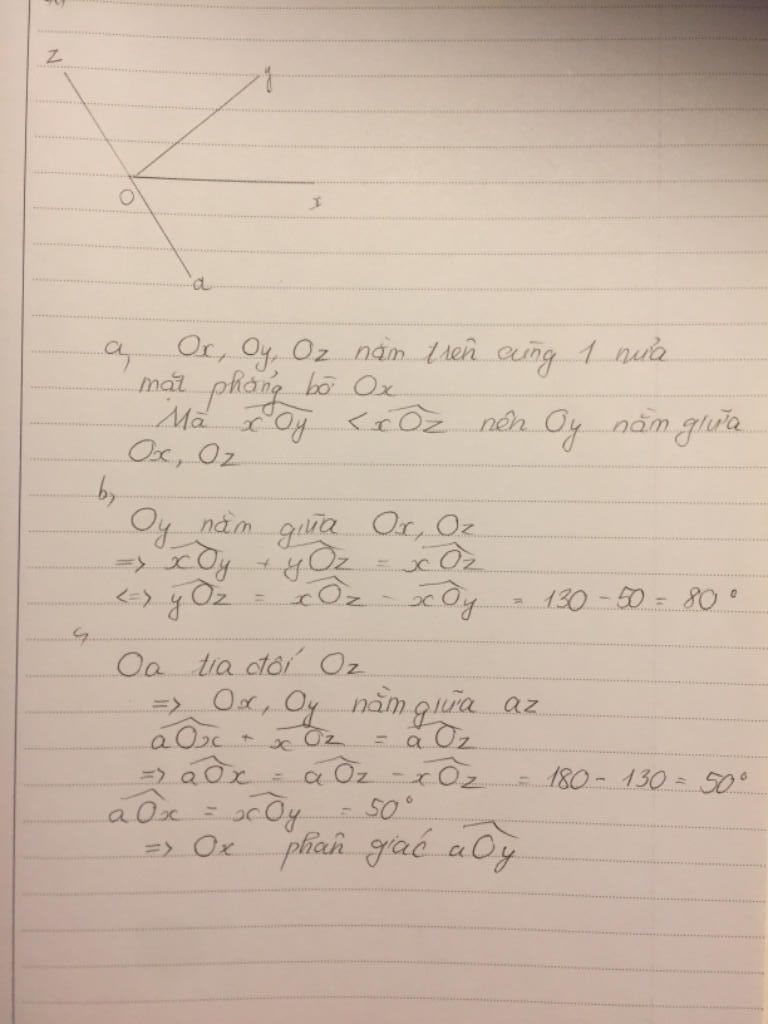 z
y
O
x
a
a, Ox, Oy, Oz nằm trên cùng 1 nửa
mặt phẳng bờ Ox
Mà xOy < xOz nên Oy nằm giữa
Ox, Oz
b,
Oy nằm giữa Ox, Oz
=> xOy + yOz = xOz
<=> yOz = xOz - xOy = 130 - 50 = 80°
c,
Oa tia đối Oz
=> Ox, Oy nằm giữa az
aOx + xOz = aOz
=> aOx = aOz - xOz = 180 - 130 = 50°
aOx = xOy = 50°
=> Ox phân giác aOy